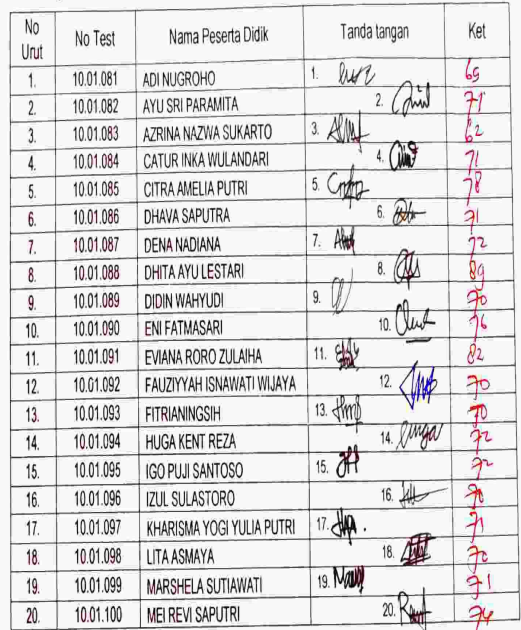 No Urut No Test Nama Peserta Didik Tanda tangan Ket
1. 10.01.081 ADI NUGROHO 1. 69
2. 10.01.082 AYU SRI PARAMITA 2. 71
3. 10.01.083 AZRINA NAZWA SUKARTO 3. 62
4. 10.01.084 CATUR INKA WULANDARI 4. 71
5. 10.01.085 CITRA AMELIA PUTRI 5. 78
6. 10.01.086 DHAVA SAPUTRA 6. 71
7. 10.01.087 DENA NADIANA 7. 72
8. 10.01.088 DHITA AYU LESTARI 8. 89
9. 10.01.089 DIDIN WAHYUDI 9. 70
10. 10.01.090 ENI FATMASARI 10. 76
11. 10.01.091 EVIANA RORO ZULAIHA 11. 82
12. 10.01.092 FAUZIYYAH ISNAWATI WIJAYA 12. 70
13. 10.01.093 FITRIANINGSIH 13. 70
14. 10.01.094 HUGA KENT REZA 14. 72
15. 10.01.095 IGO PUJI SANTOSO 15. 72
16. 10.01.096 IZUL SULASTORO 16. 70
17. 10.01.097 KHARISMA YOGI YULIA PUTRI 17. 71
18. 10.01.098 LITA ASMAYA 18. 70
19. 10.01.099 MARSHELA SUTIAWATI 19. 71
20. 10.01.100 MEI REVI SAPUTRI 20. 74